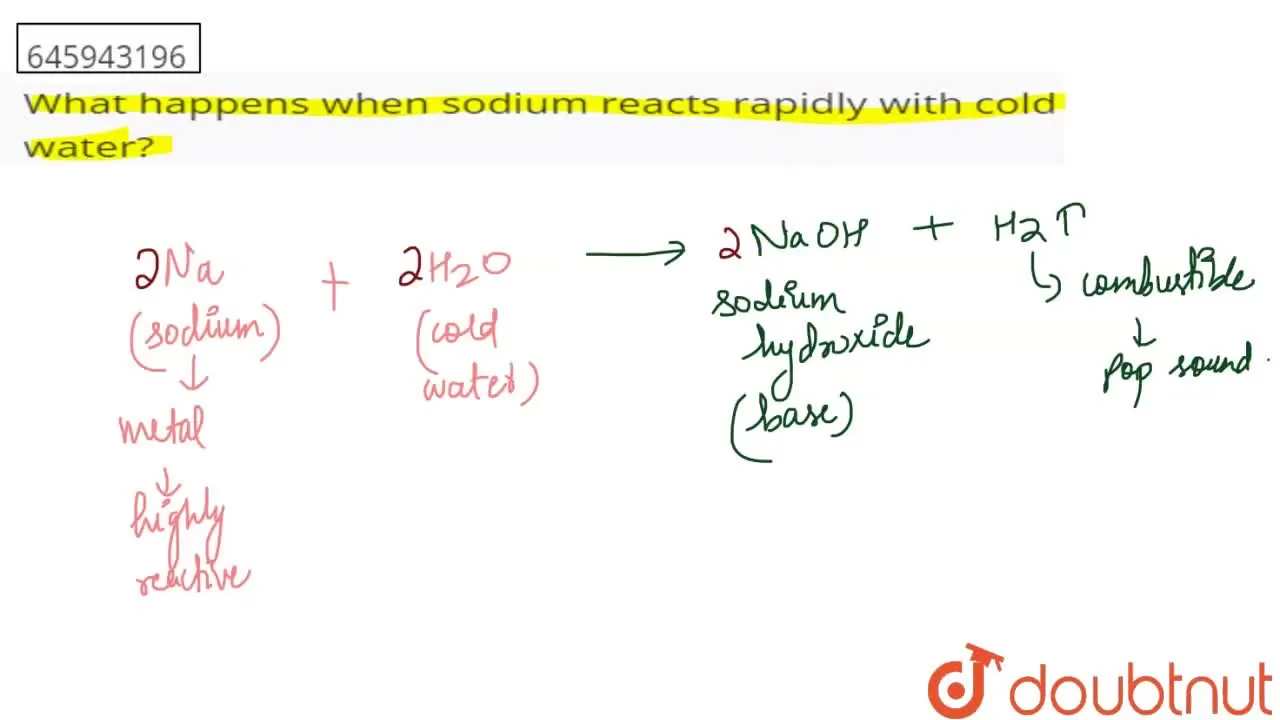 645943196
What happens when sodium reacts rapidly with cold
water?
2Na + 2H2O → 2NaOH + H2↑
(sodium)
↓
metal
↓
highly
reactive
(cold
water)
sodium
hydroxide
(base)
↳ combustible
↓
Pop sound.
doubtnut